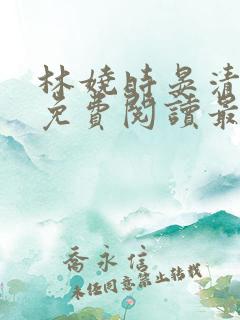 林嬈時晏清
免費閱讀最
喬永信
未經同意禁止轉載